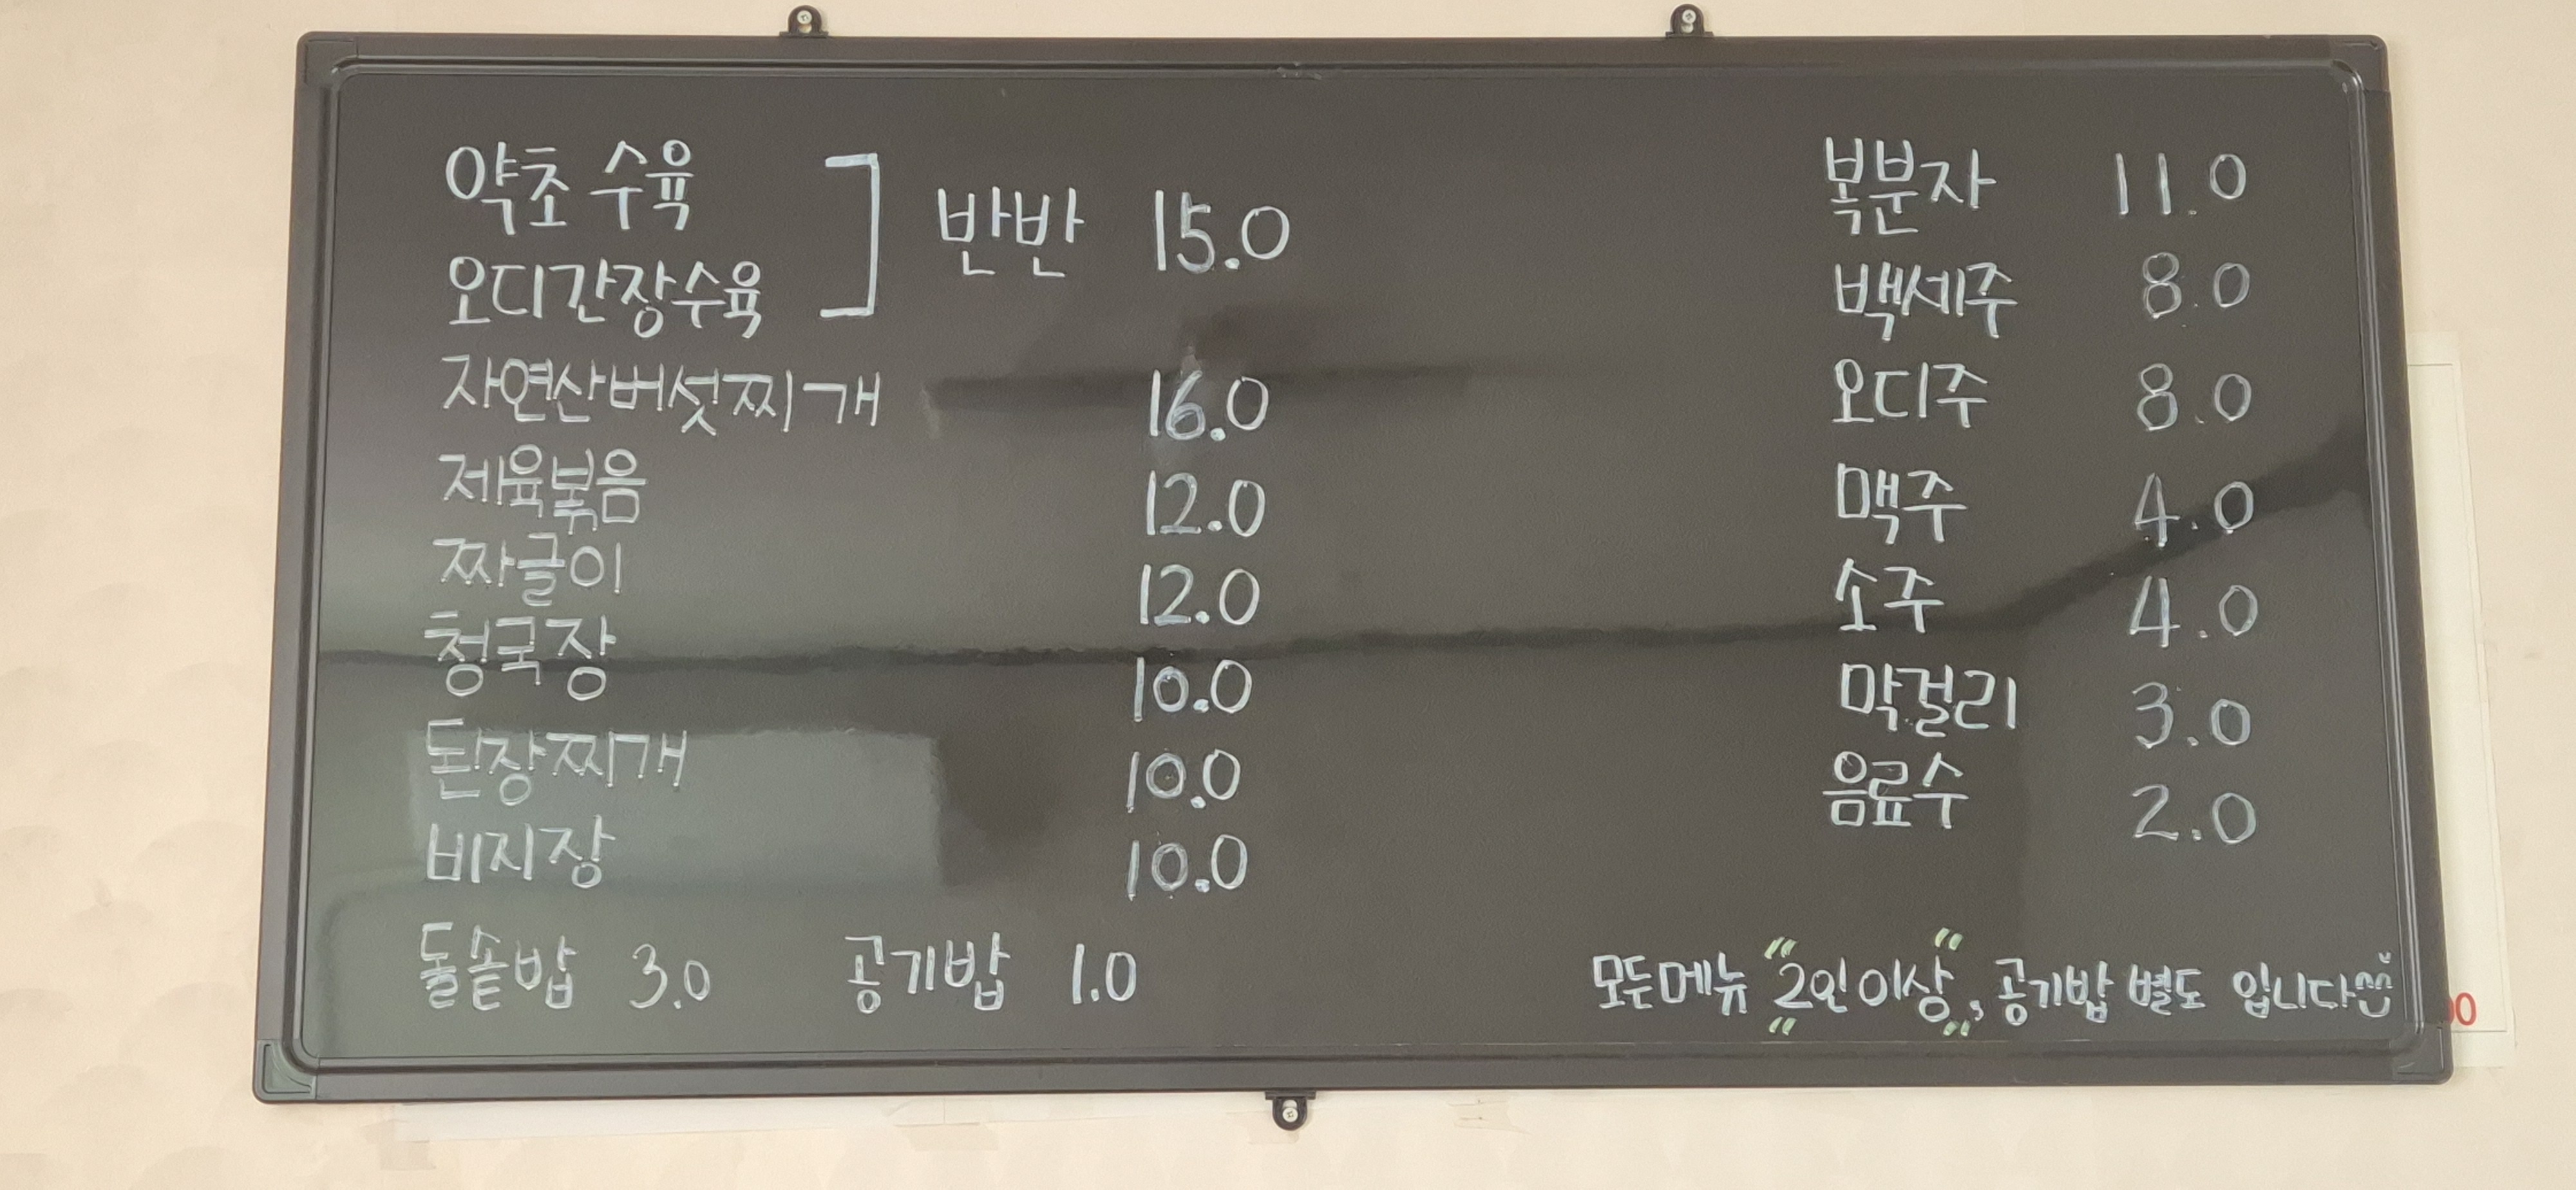 약초 수육
오디간장수육
반반 15.0
자연산버섯찌개 16.0
제육볶음 12.0
짜글이 12.0
청국장 10.0
된장찌개 10.0
비지장 10.0
돌솥밥 3.0 공기밥 1.0
복분자 11.0
백세주 8.0
오디주 8.0
맥주 4.0
소주 4.0
막걸리 3.0
음료수 2.0
모든메뉴 "2인이상", 공기밥 별도 입니다
00